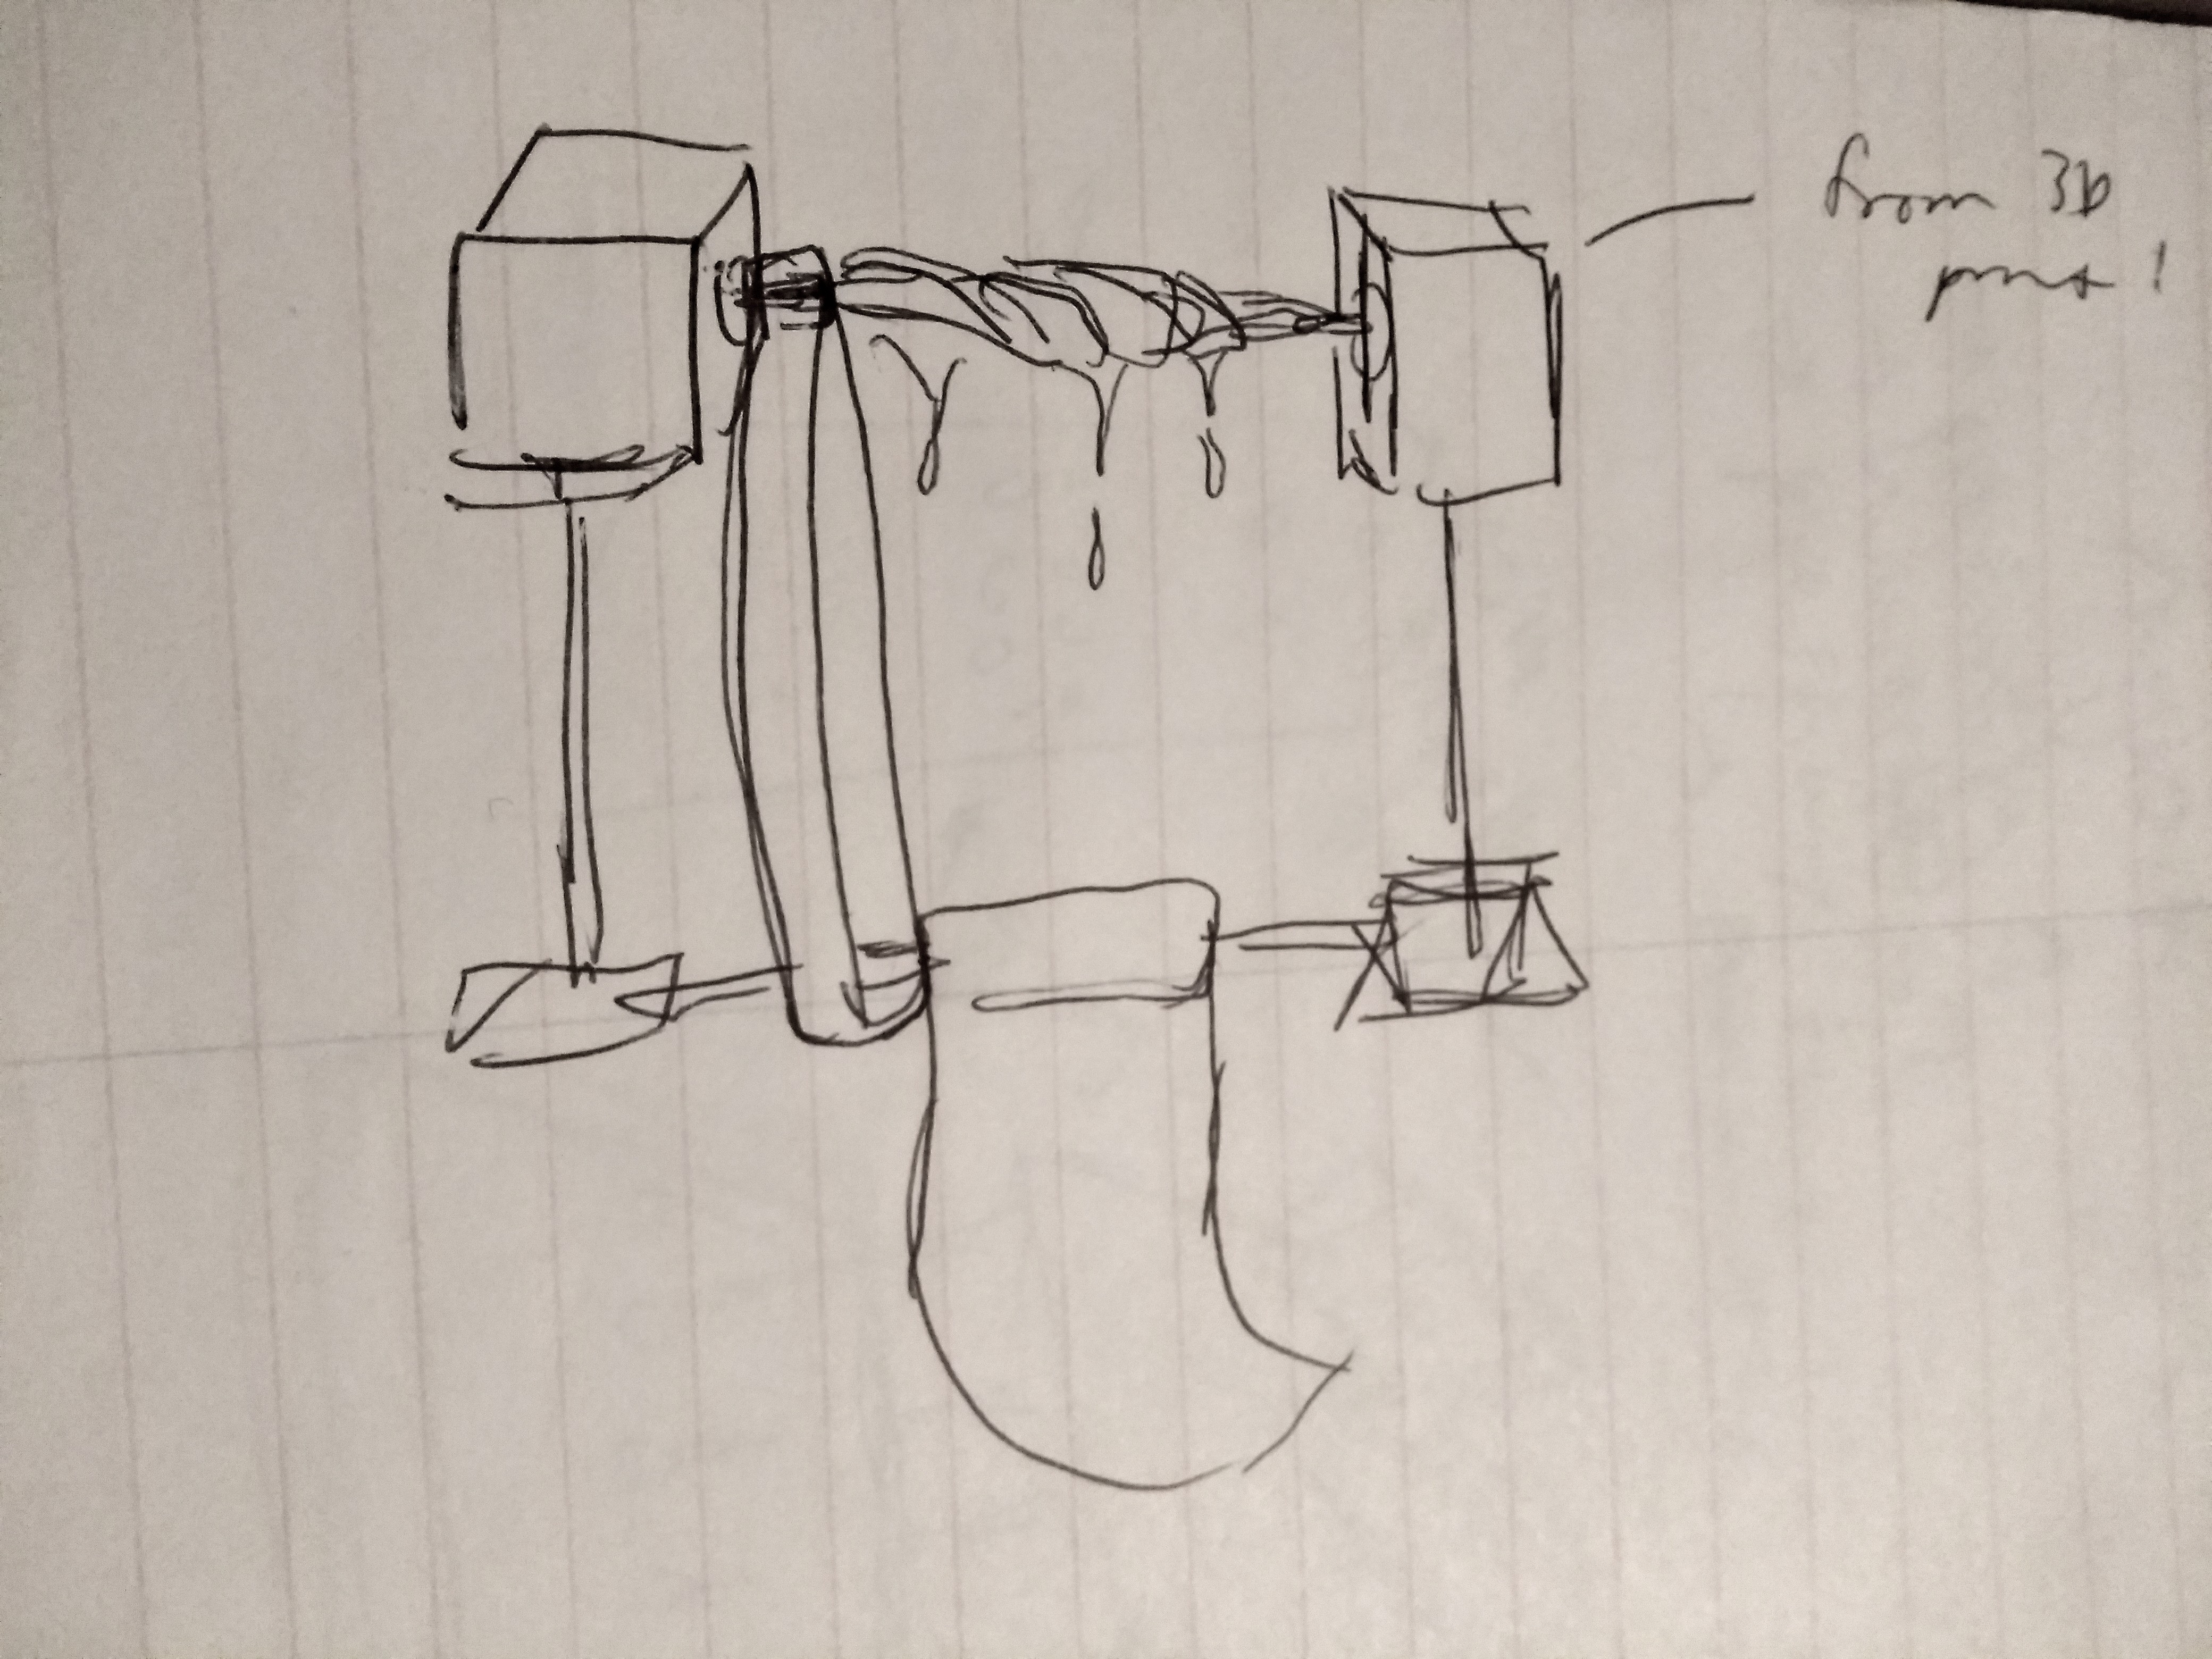 from 3D
print!